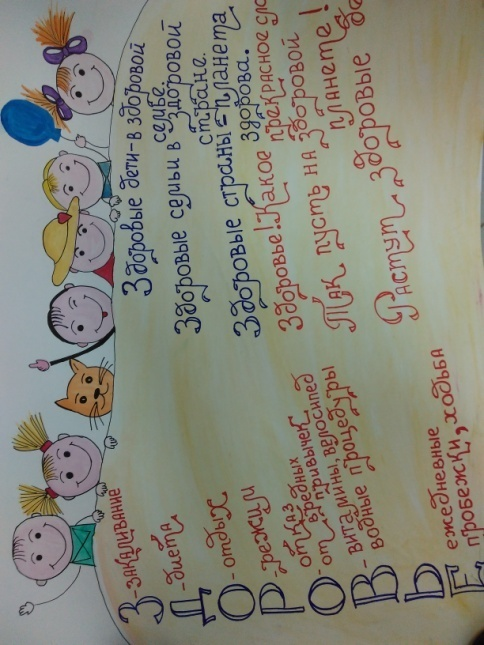 З -закаливание
Д -диета
О - отдых
Р -режим
О - отказ
от вредных
привычек
В - витамины, велосипед
водные процедуры
Ь
Е ежедневные
пробежки, ходьба
Здоровые дети-в здоровой
семье.
Здоровые семьи в здоровой
стране.
Здоровые страны=планета
здорова.
Здоровье! Какое прекрасное
Так пусть на здоровой
планете!
Растут здоровые